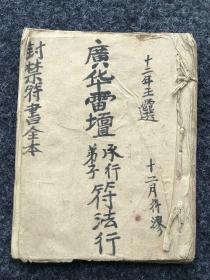 十二年王選
十二月弄謬
廣华雷壇
承行
弟子
符法行
封禁符書全本